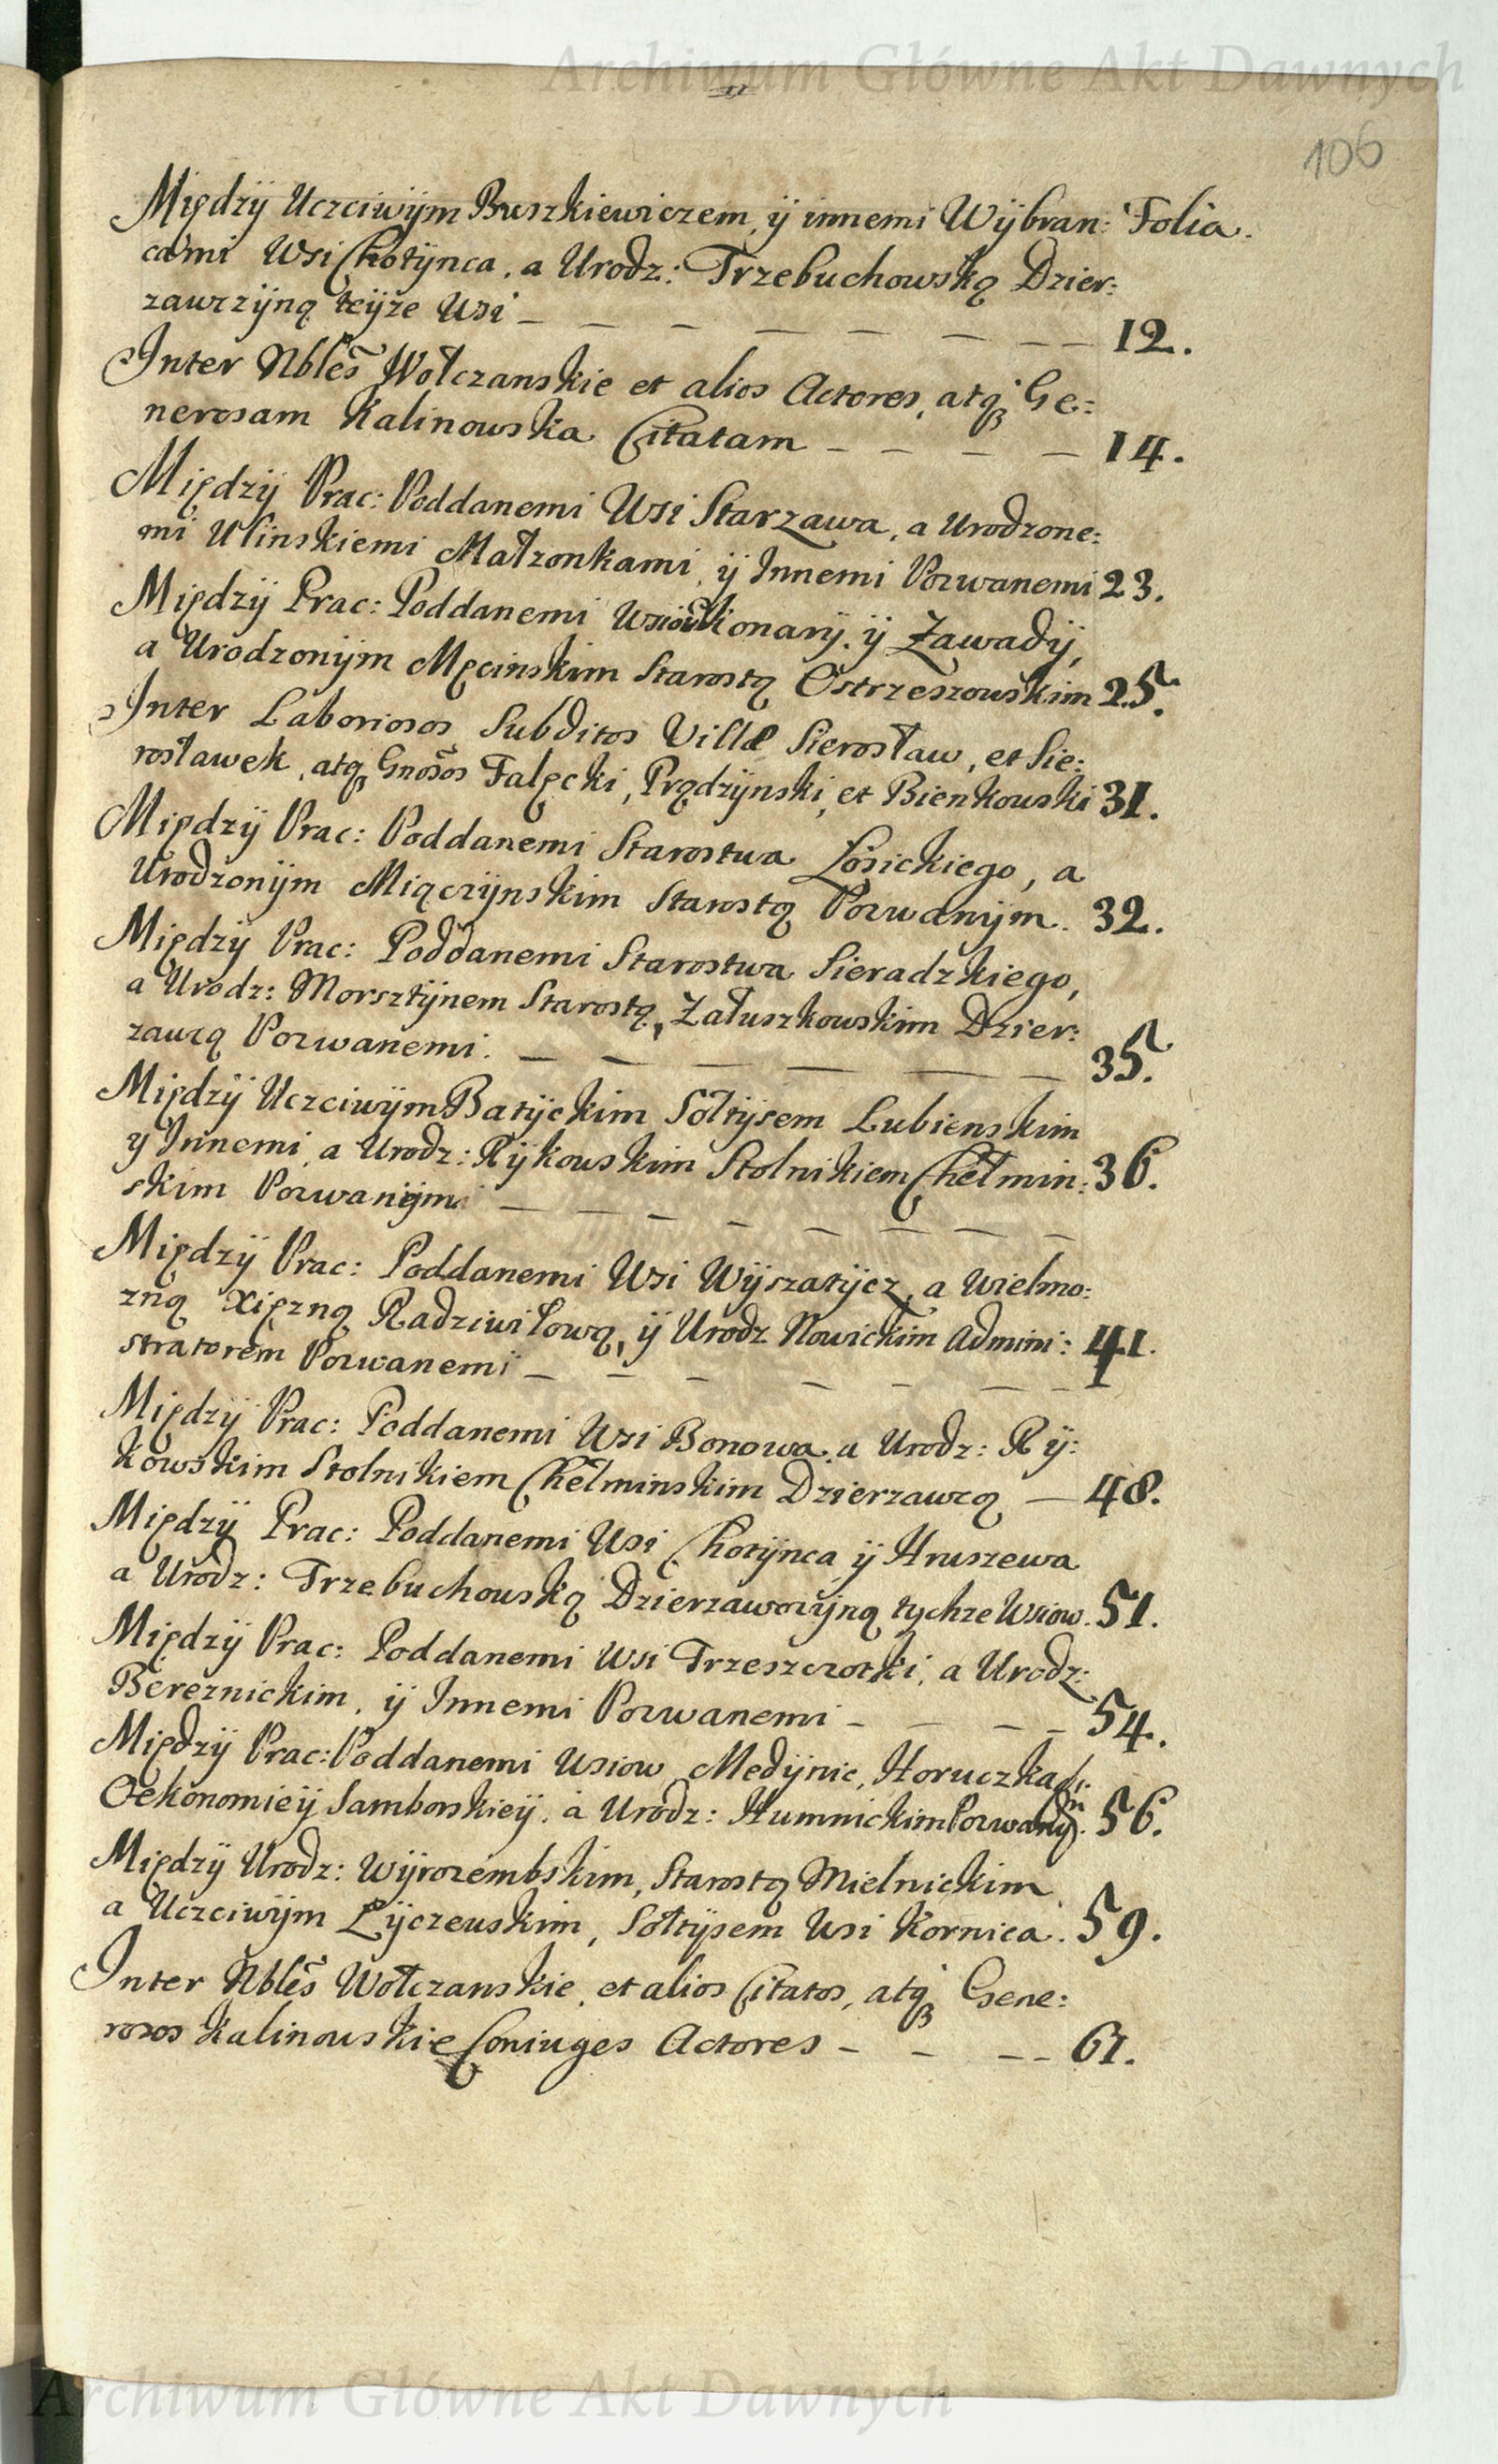 Archiwum Główne Akt Dawnych
106
Między Uczciwÿm Buszkiewiczem, ÿ innemi Wÿbran: Folia.
cami Wsi Chotÿnca, a Urodz: Trzebuchowską Dzier:
zawczÿną teÿże Wsi — — — — — — — 12.
Inter Nbles Wołczanskie et alios Actores, atq Ge:
nerosam Kalinowska Citatam — — — — 14.
Międzÿ Prac: Poddanemi Wsi Starzawa, a Urodzone:
mi Ulinskiemi Małzonkami, ÿ Innemi Pozwanemi 23.
Międzÿ Prac: Poddanemi Wsiow Monarÿ, ÿ Zawadÿ,
a Urodzonÿm Męcinskim Starostą Ostrzeszowskim 25.
Inter Laboriosos Subditos Villæ Sierosław, et Sie:
rosławek, atq Gnosos Falęcki, Prądzÿnski, et Bienkowski 31.
Międzÿ Prac: Poddanemi Starostwa Łosickiego, a
Urodzonÿm Miączÿnskim Starostą Pozwanÿm. 32.
Międzÿ Prac: Poddanemi Starostwa Sieradzkiego,
a Urodz: Morsztÿnem Starostą, Załuszkowskim Dzier:
zawcą Pozwanemi. — — — — — — 35.
Międzÿ Uczciwÿm Batÿckim Sołtÿsem Lubienskim
y Innemi, a Urodz: Rÿkowskim Stolnikiem Chełmin: 36.
skim Pozwanÿm — — — — — — — —
Międzÿ Prac: Poddanemi Wsi Wÿszatÿcz, a Wielmo:
zną Xiężną Radziwiłową, ÿ Urodz Nowickim Admini: 41.
stratorem Pozwanemi — — — — — — —
Międzÿ Prac: Poddanemi Wsi Bonowa, a Urodz: Rÿ:
kowskim Stolnikiem Chełminskim Dzierzawcą — 48.
Międzÿ Prac: Poddanemi Wsi Chotÿnca ÿ Hruszewa
a Urodz: Trzebuchowską Dzierzawczÿną tychze Wsiow. 51.
Międzÿ Prac: Poddanemi Wsi Trzeszczotki, a Urodz:
Bereznickim, ÿ Innemi Pozwanemi — — — — 54.
Międzÿ Prac: Poddanemi Wsiow Medÿnic, Horuczka
Oekonomieÿ Samborskieÿ, a Urodz: Humnickim Pozwanÿm. 56.
Międzÿ Urodz: Wÿrozembskim, Starostą Mielnickim
a Uczciwÿm Łÿczewskim, Sołtÿsem Wsi Kornica. 59.
Inter Nbles Wołczanskie, et alios Citatos, atq Gene:
rosos Kalinowskie Coniuges Actores — — — — 61.
Archiwum Główne Akt Dawnych